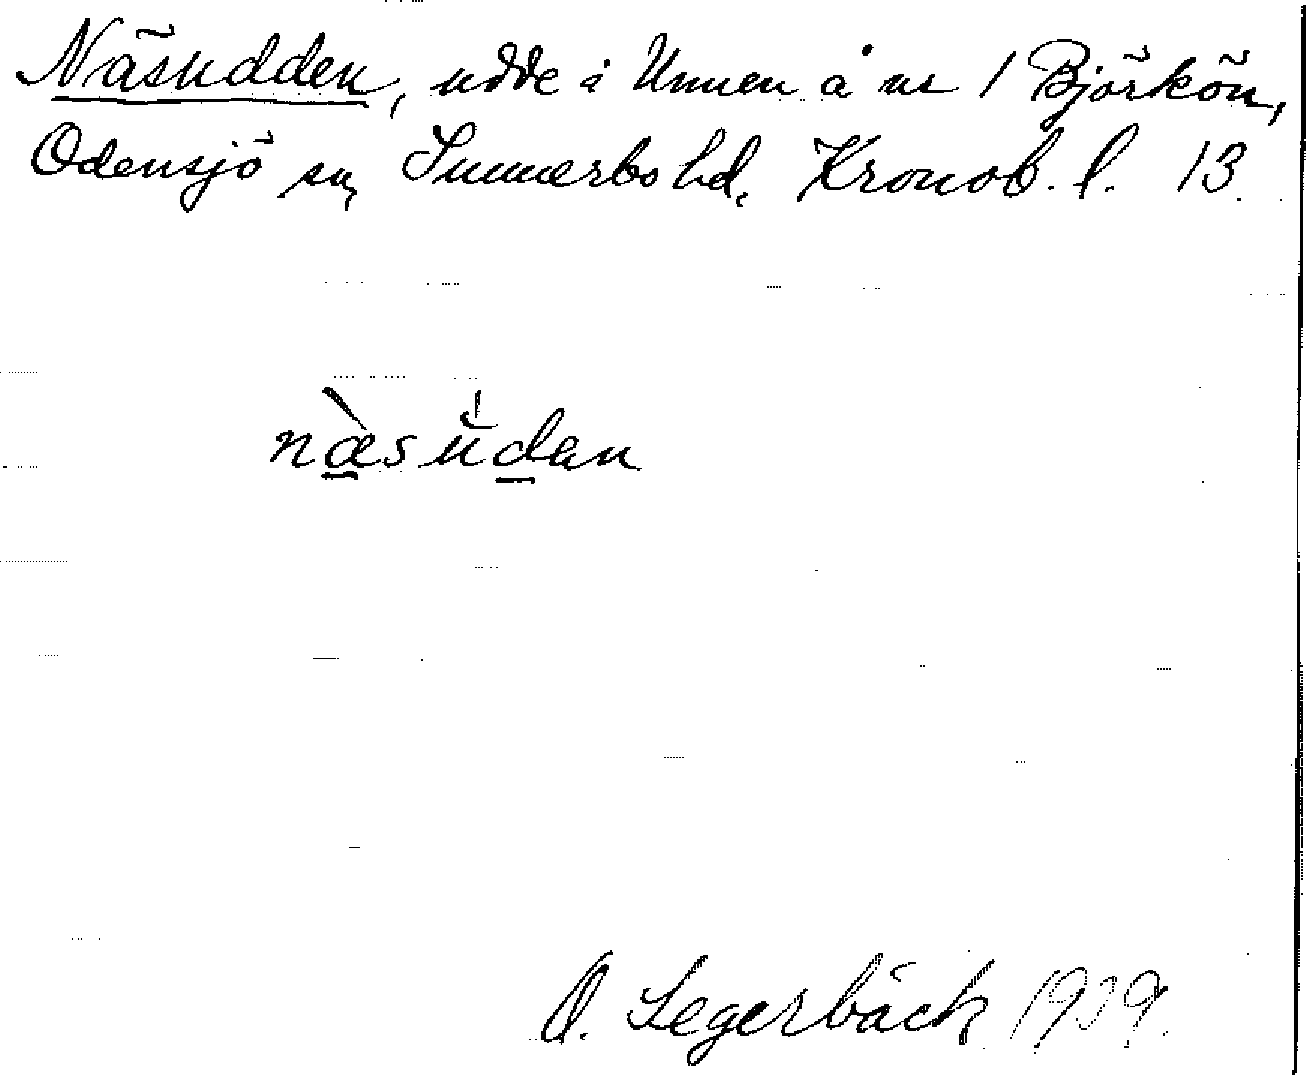 Näsudden, udde i Unnen å nr 1 Björkön,
Odensjö sn, Sunnerbo hd, Kronob. l. 13.
næ̀sŭdan
O. Segerbäck 1939.